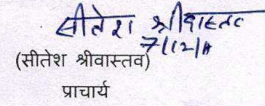 सीतेश श्रीवास्तव
7/12/
(सीतेश श्रीवास्तव)
प्राचार्य